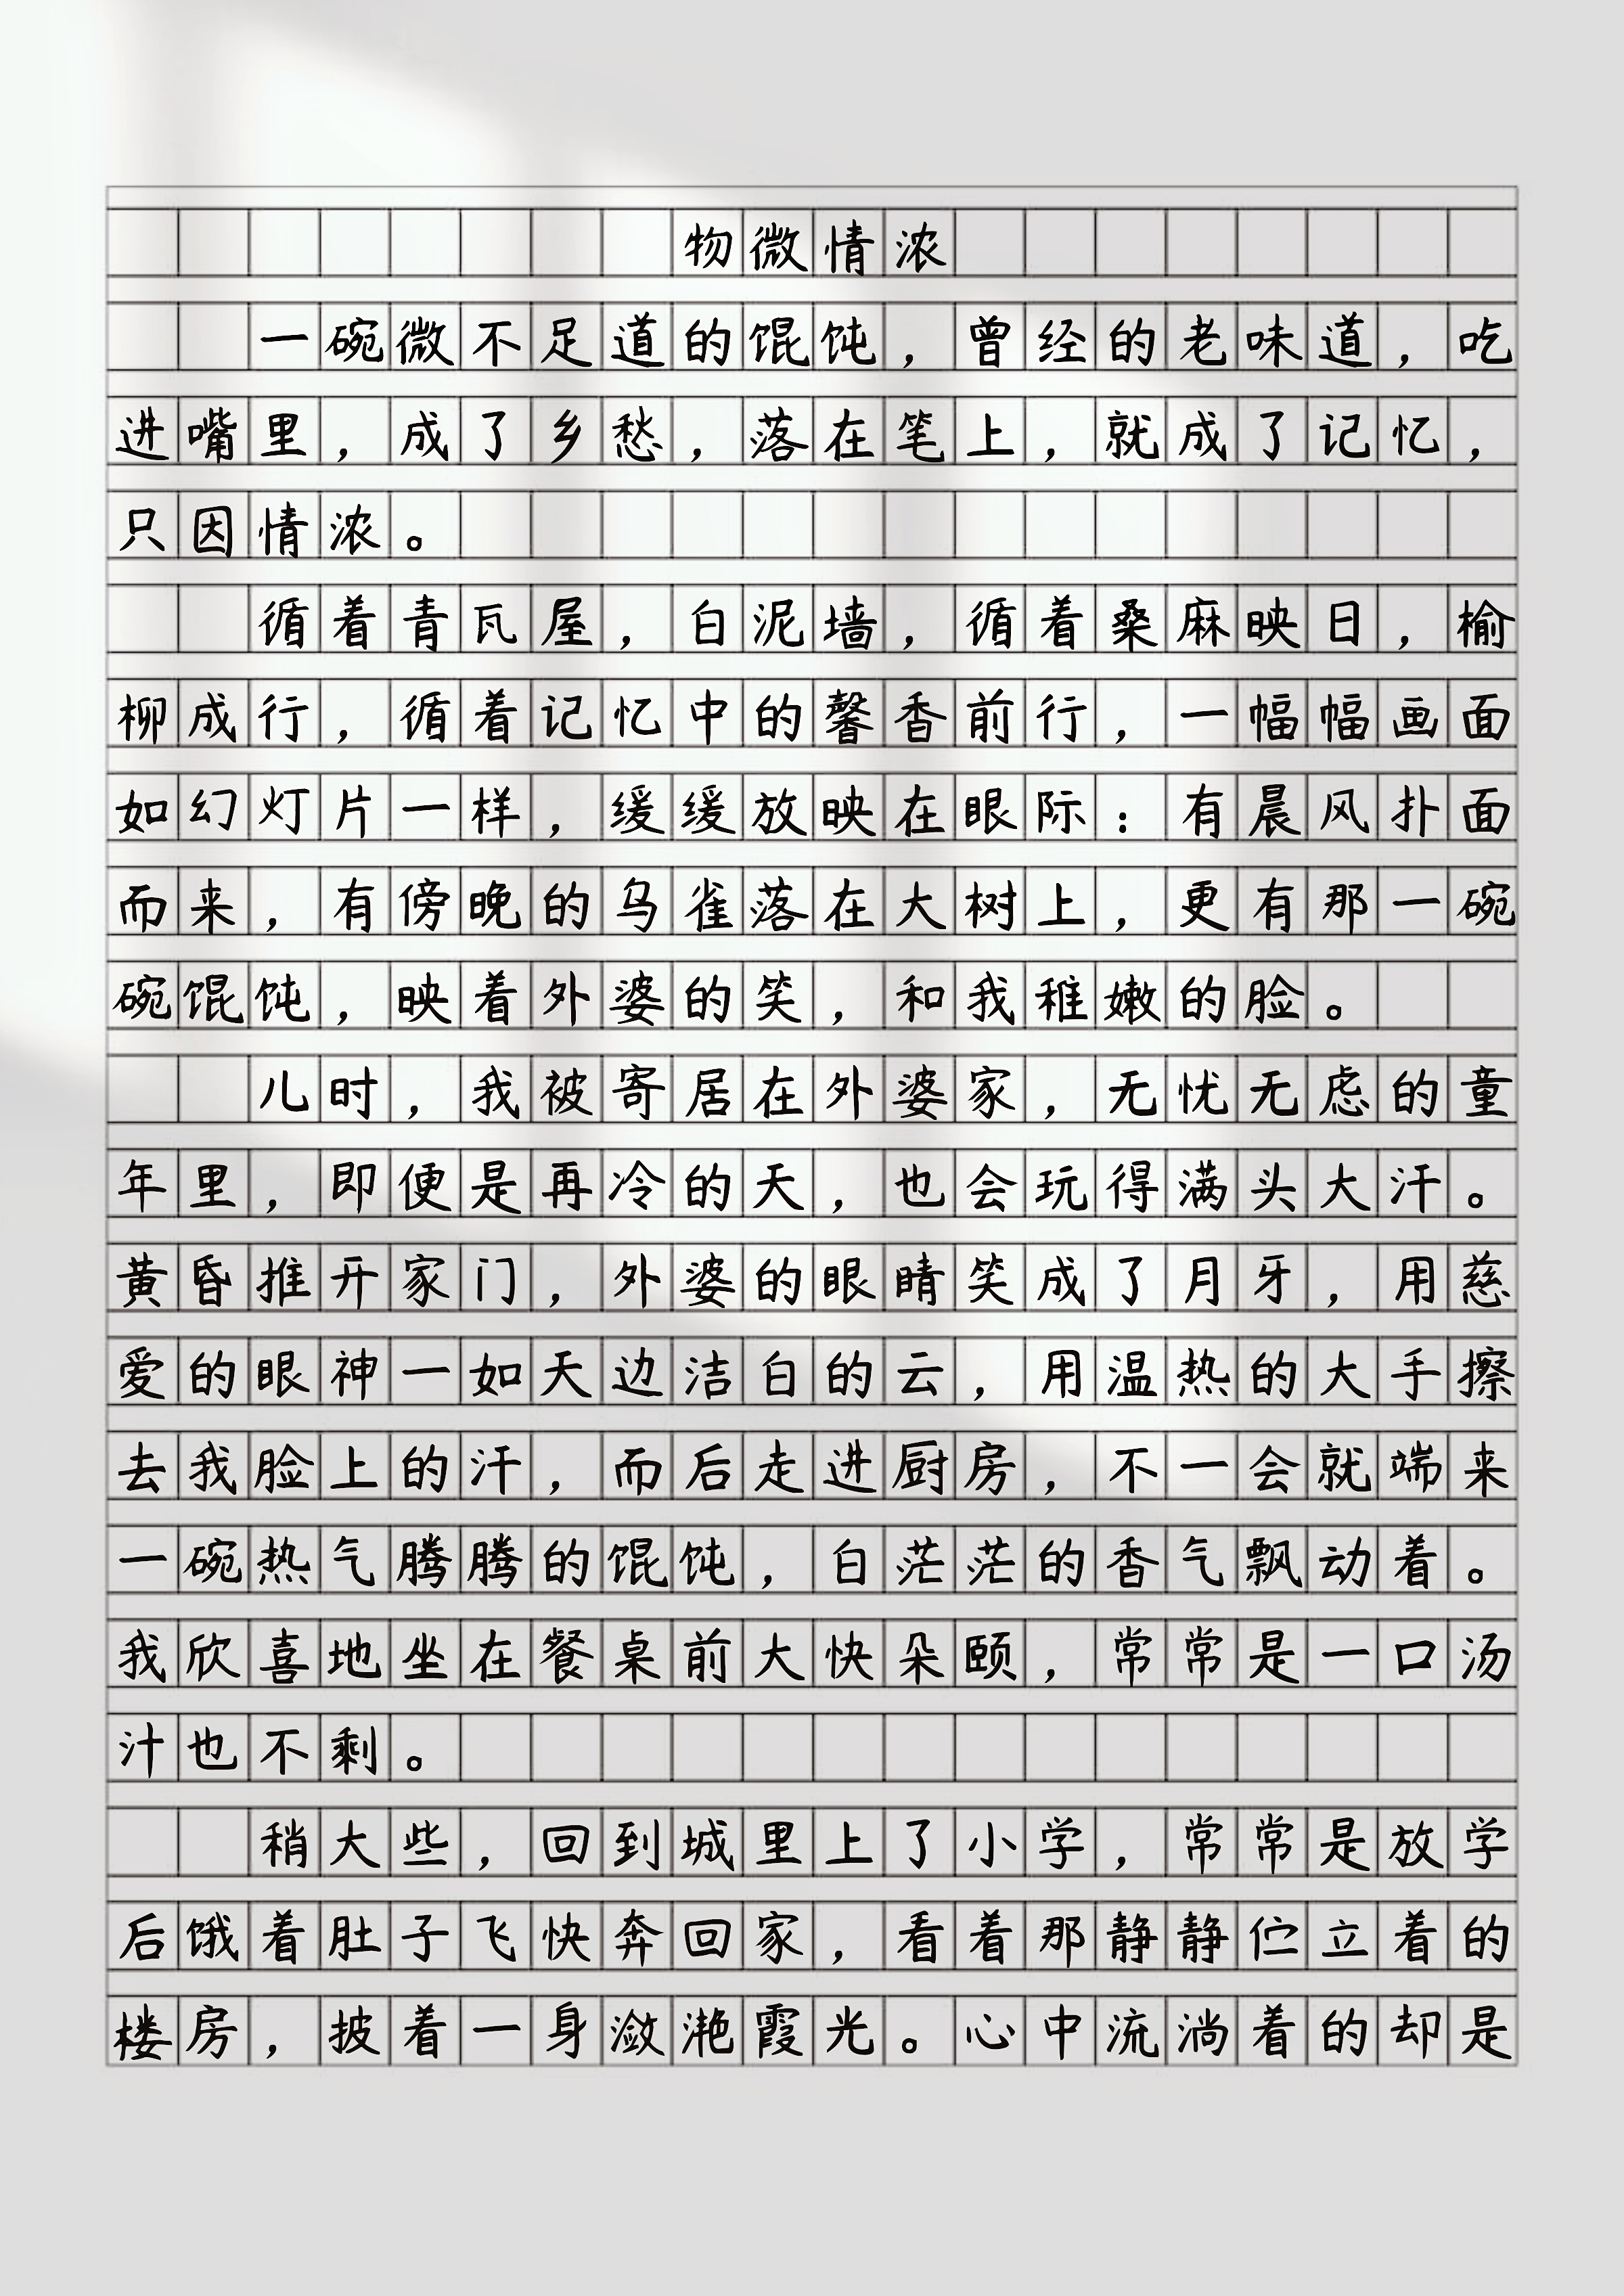 物微情浓
一碗微不足道的馄饨，曾经的老味道，吃
进嘴里，成了乡愁，落在笔上，就成了记忆，
只因情浓。
循着青瓦屋，白泥墙，循着桑麻映日，榆
柳成行，循着记忆中的馨香前行，一幅幅画面
如幻灯片一样，缓缓放映在眼际：有晨风扑面
而来，有傍晚的乌雀落在大树上，更有那一碗
碗馄饨，映着外婆的笑，和我稚嫩的脸。
儿时，我被寄居在外婆家，无忧无虑的童
年里，即便是再冷的天，也会玩得满头大汗。
黄昏推开家门，外婆的眼睛笑成了月牙，用慈
爱的眼神一如天边洁白的云，用温热的大手擦
去我脸上的汗，而后走进厨房，不一会就端来
一碗热气腾腾的馄饨，白茫茫的香气飘动着。
我欣喜地坐在餐桌前大快朵颐，常常是一口汤
汁也不剩。
稍大些，回到城里上了小学，常常是放学
后饿着肚子飞快奔回家，看着那静静伫立着的
楼房，披着一身潋滟霞光。心中流淌着的却是